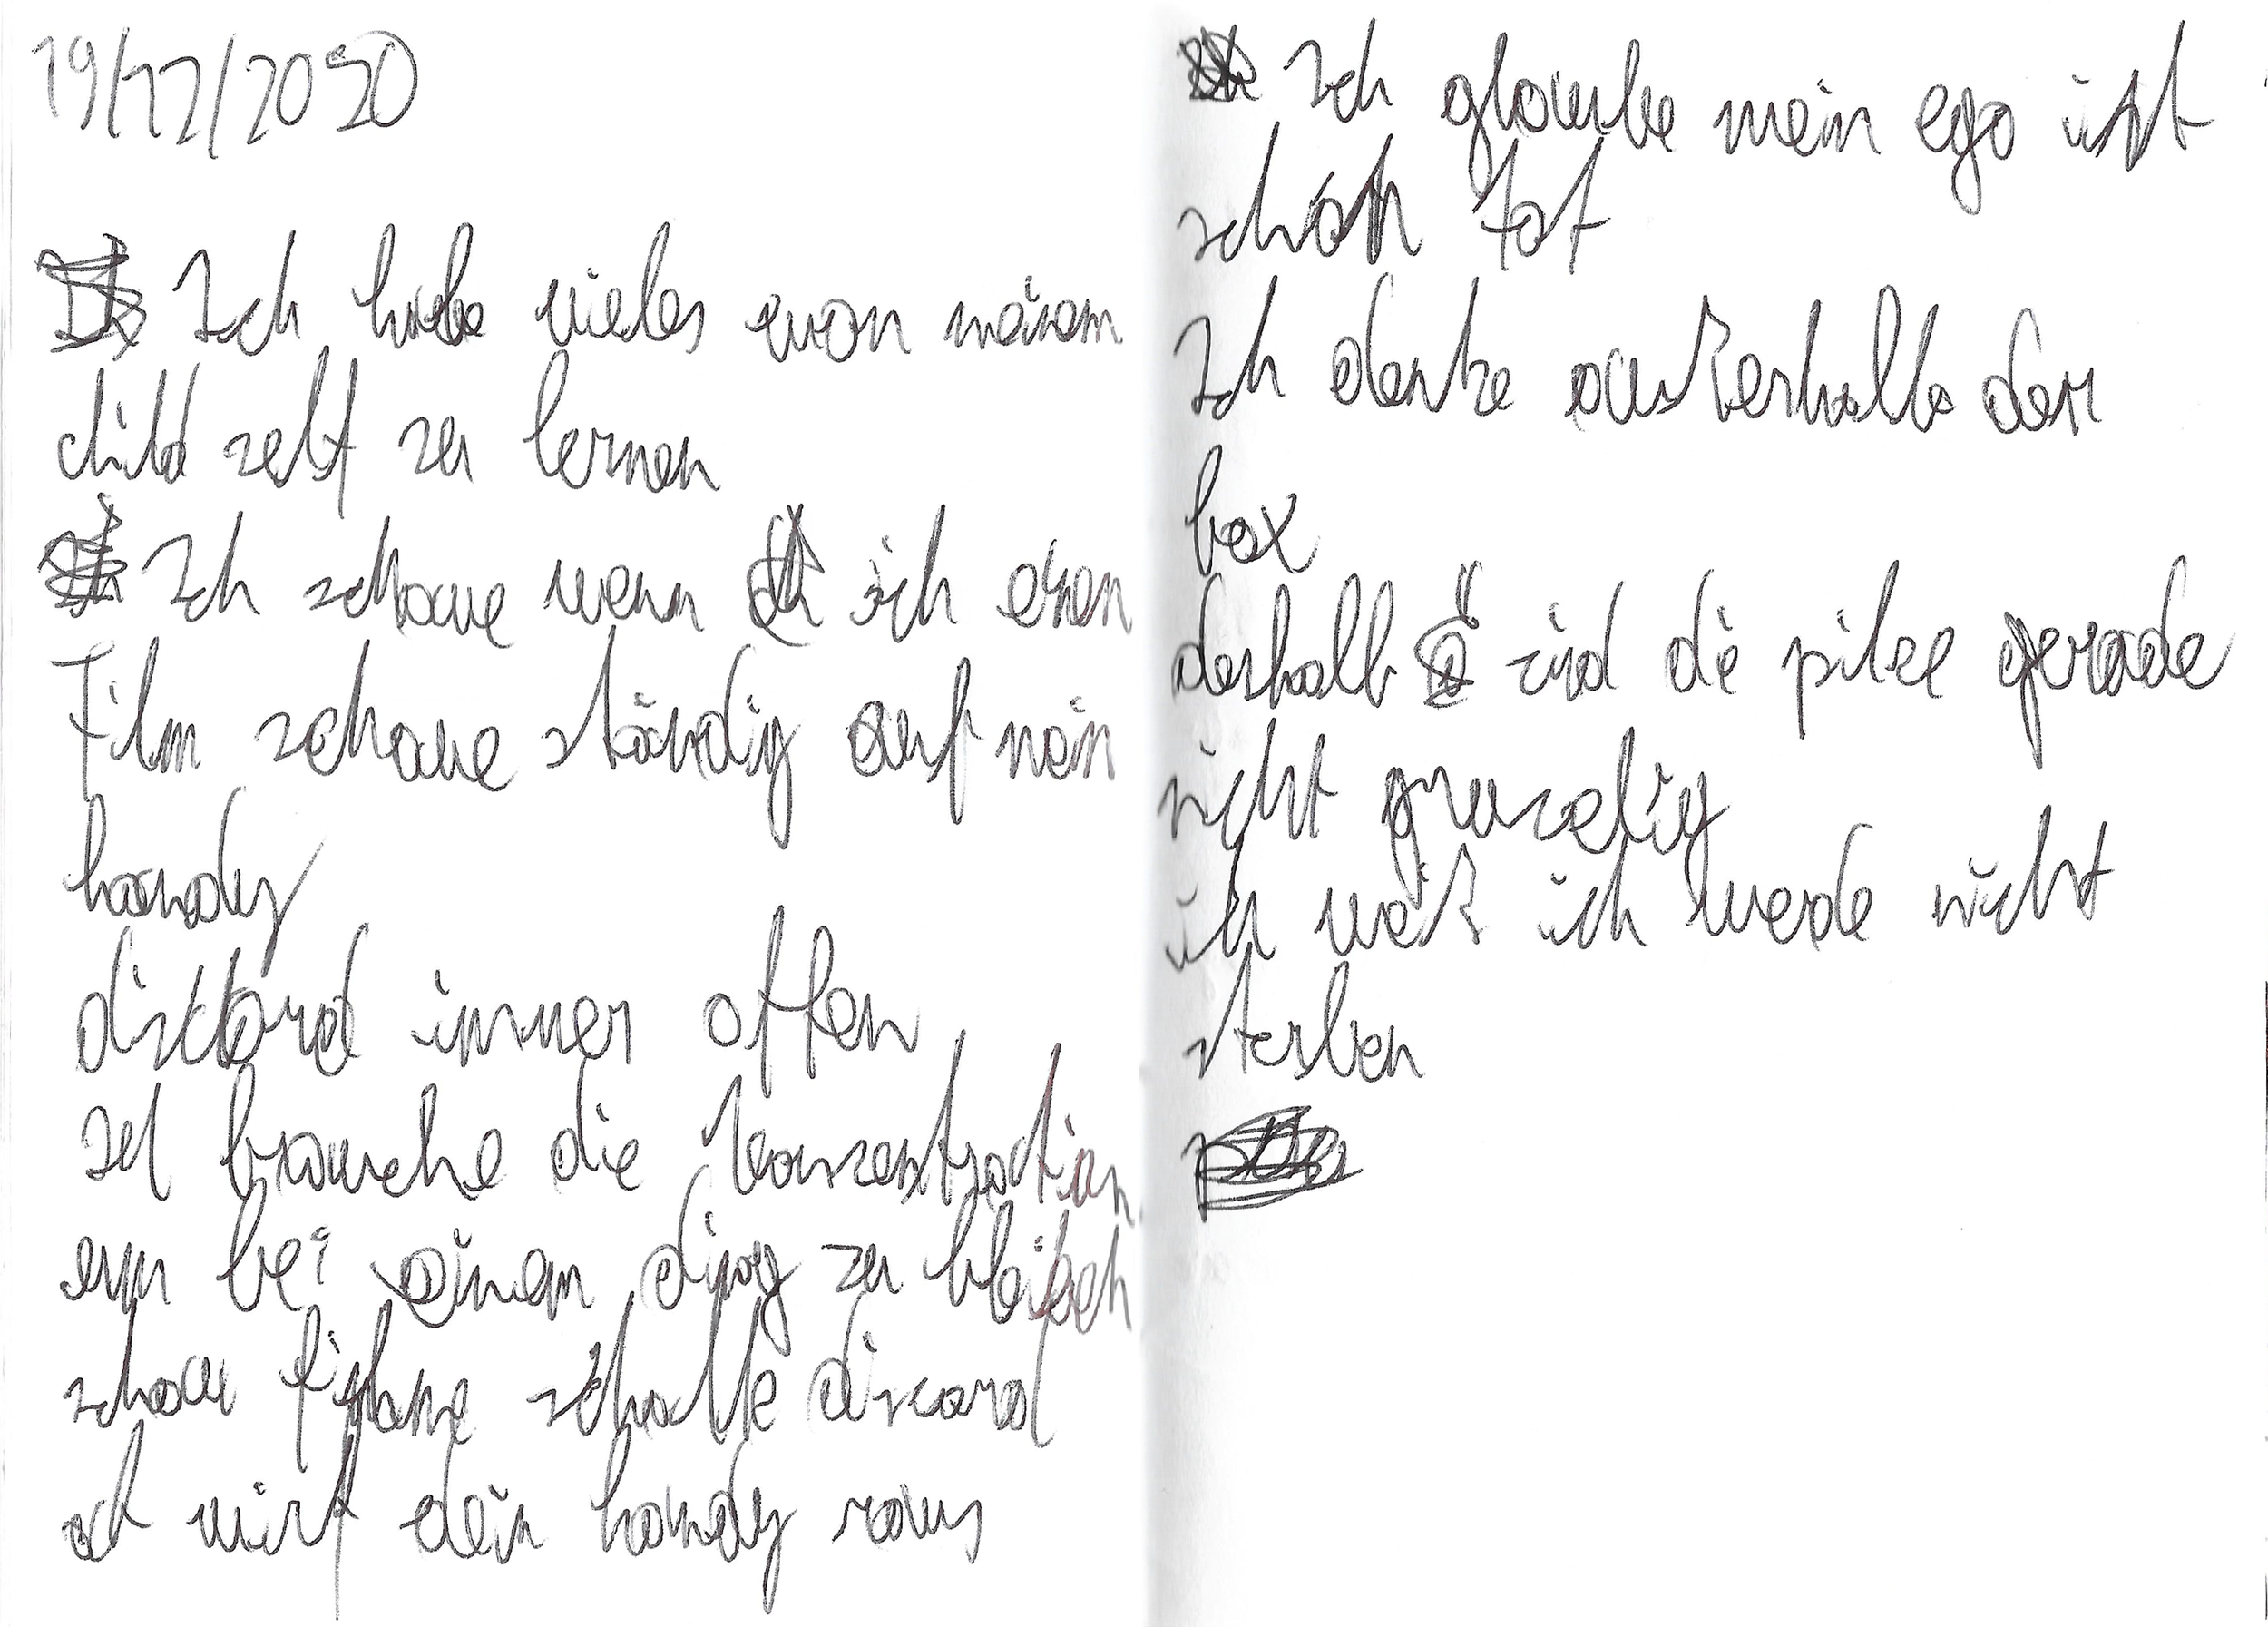 19/12/2020
Ich habe vieles von meinem
child self zu lernen
Ich schaue wenn ich einen
Film schaue ständig auf mein
handy
discord immer offen
Ich brauche die konzentration
um bei einem ding zu bleiben
schau filme schalte discord
ab wirf dein handy raus
Ich glaube mein ego ist
schon tot
Ich denke außerhalb der
box
deshalb sind die pilze gerade
nicht gruselig
ich weiß ich werde nicht
sterben